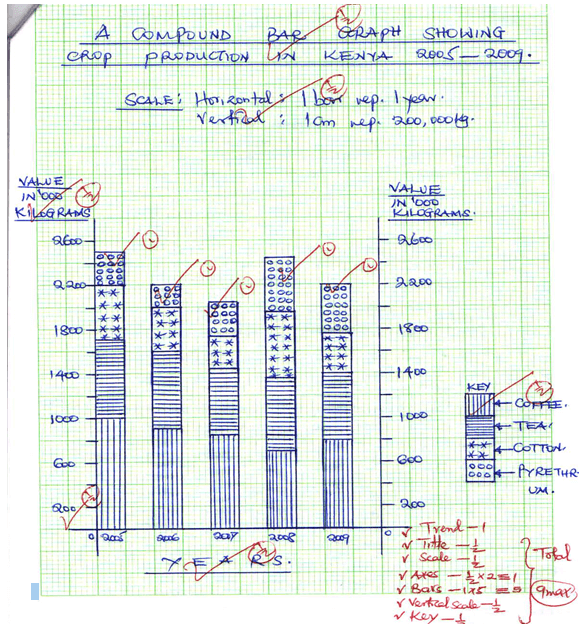 A COMPOUND BAR GRAPH SHOWING
CROP PRODUCTION IN KENYA 2005 — 2009.
SCALE: Horizontal: 1 bar rep. 1 year.
Vertical : 1cm rep. 200,000kg.
VALUE
IN '000
KILOGRAMS
VALUE
IN '000
KILOGRAMS.
2600
2200
1800
1400
1000
600
200
0
2600
2200
1800
1400
1000
600
200
0
2005 2006 2007 2008 2009
YEARS.
KEY
COFFEE.
TEA.
COTTON.
PYRETHR
UM.
✓ Trend — 1
✓ Title — 1/2
✓ Scale — 1/2
✓ Axes — 1/2 x 2 = 1
✓ Bars — 1x5 = 5
✓ Vertical scale — 1/2
✓ Key — 1/2
Total
9max